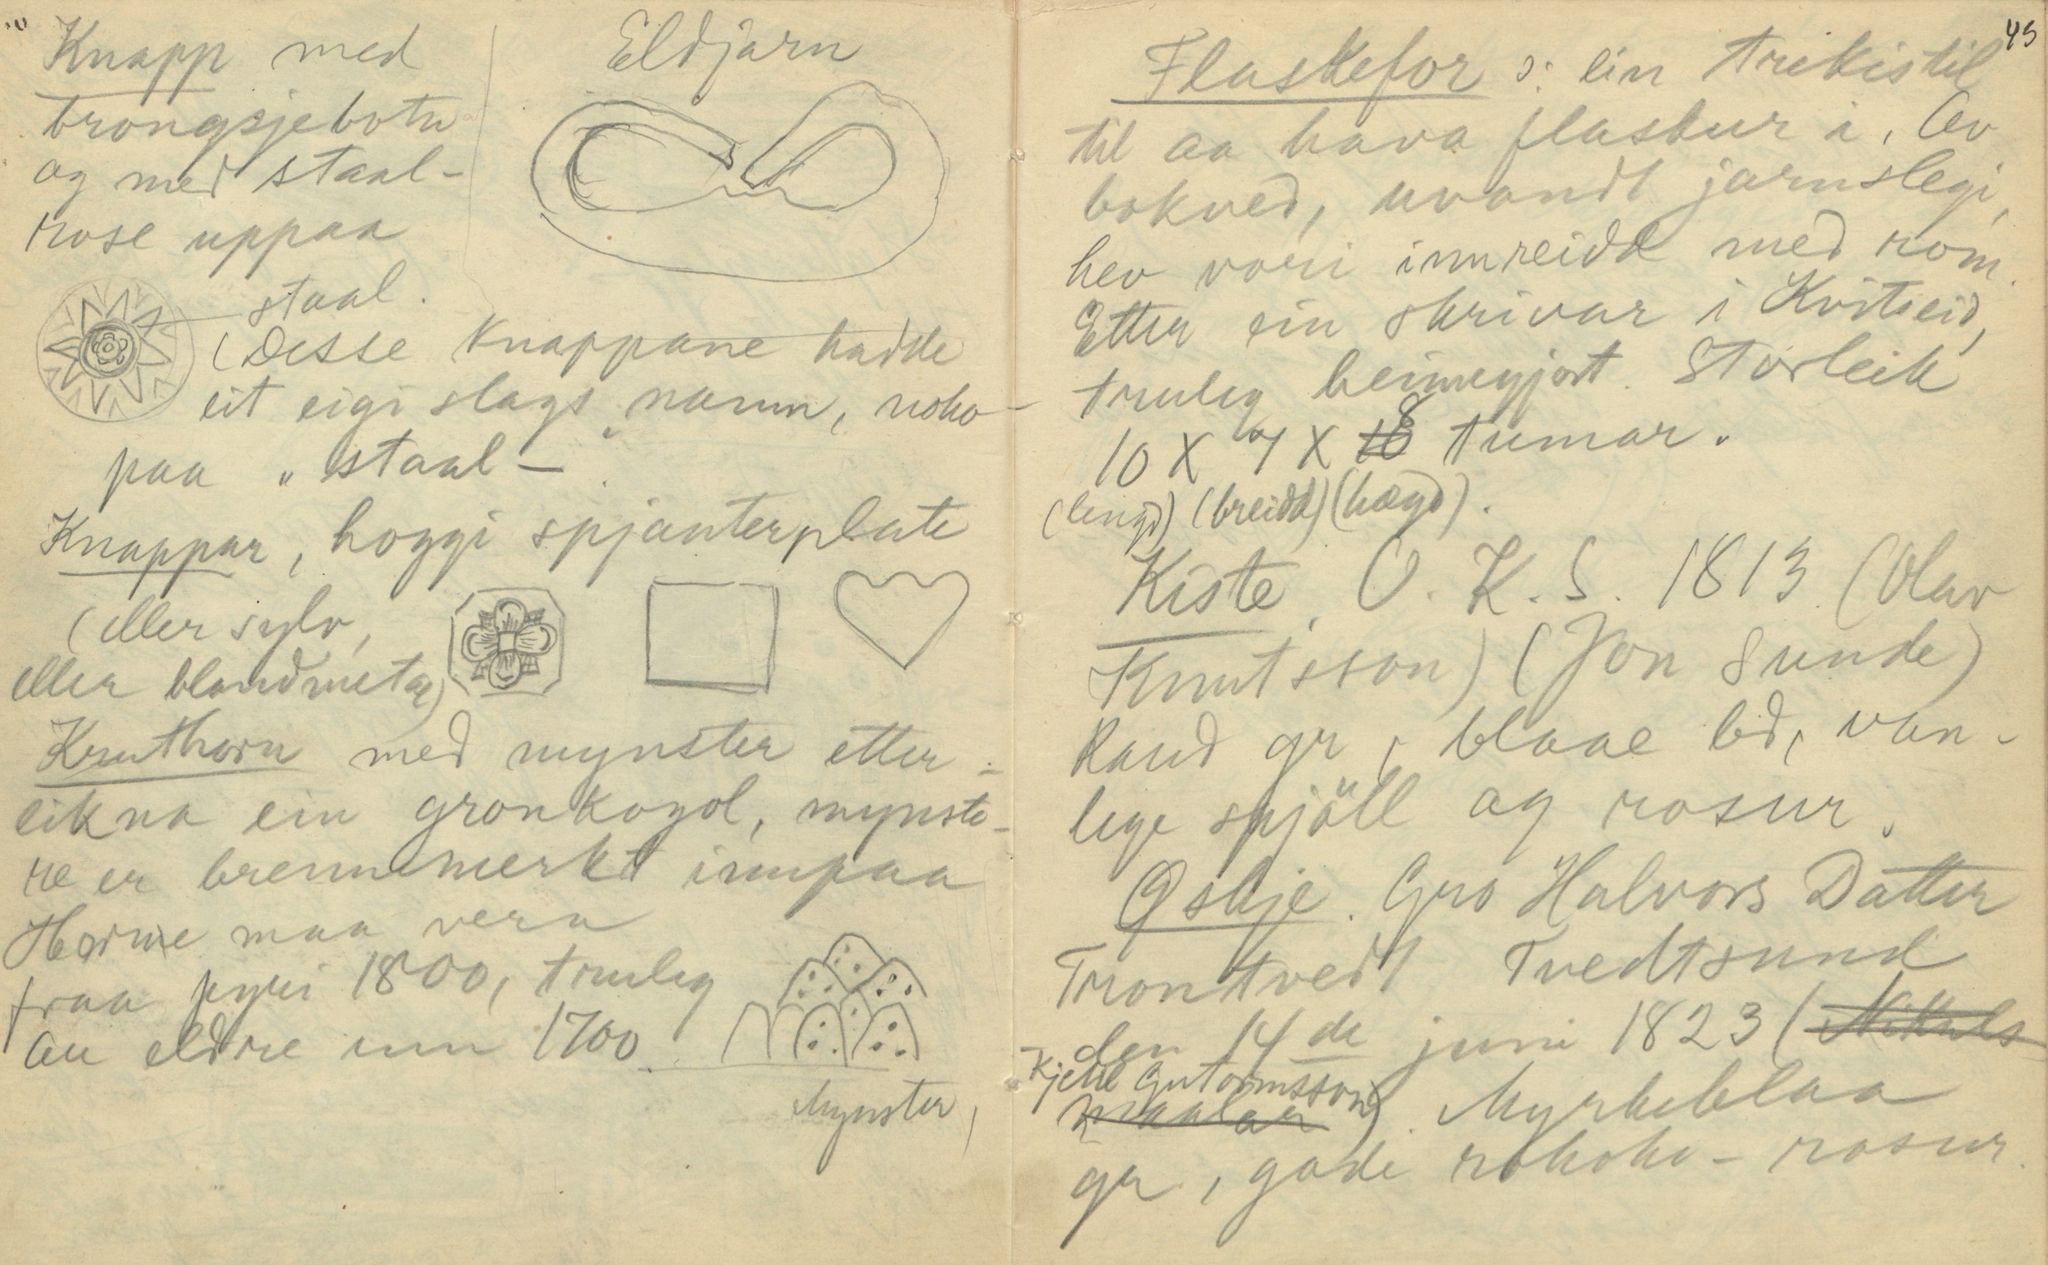 Knapp med
brongsjebotn
og med staal-
rose uppaa
staal.
(Desse knappane hadde
eit eigi slags namn, noko
paa „staal—
Knappar, hoggi spjanterplate
(eller sylv,
eller blandmetal)
Kruthorn med mynster etter-
likna ein gronkogol, mynste-
re er brennemerkt innpaa
Horne maa vera
fraa fyri 1800, truleg
au eldre inn 1700
Mynster,
Eldjarn
45
Flaskefor ɔ: ein trikistil
til aa hava flaskur i. Av
bokved, uvandt jarnslegi,
hev vori innreidd med rom.
Etter ein skrivar i Kviteseid,
truleg heimegjort. Storleik
10 X 7 X 8 tumar.
(lengd) (breidd) (høgd).
Kiste O. K. S. 1813 (Olav
Knutsson) (Jon Sunde)
Raud gr, blaae bd, van-
lege spjöll og rosur.
Øskje. Gro Halvors Datter
Trontvedt Tvedtsund
den 14de juni 1823 (Nikuls
Kjetil Gutormsson)
maalar). Myrkeblaa
gr, gode rokoko-rosur.